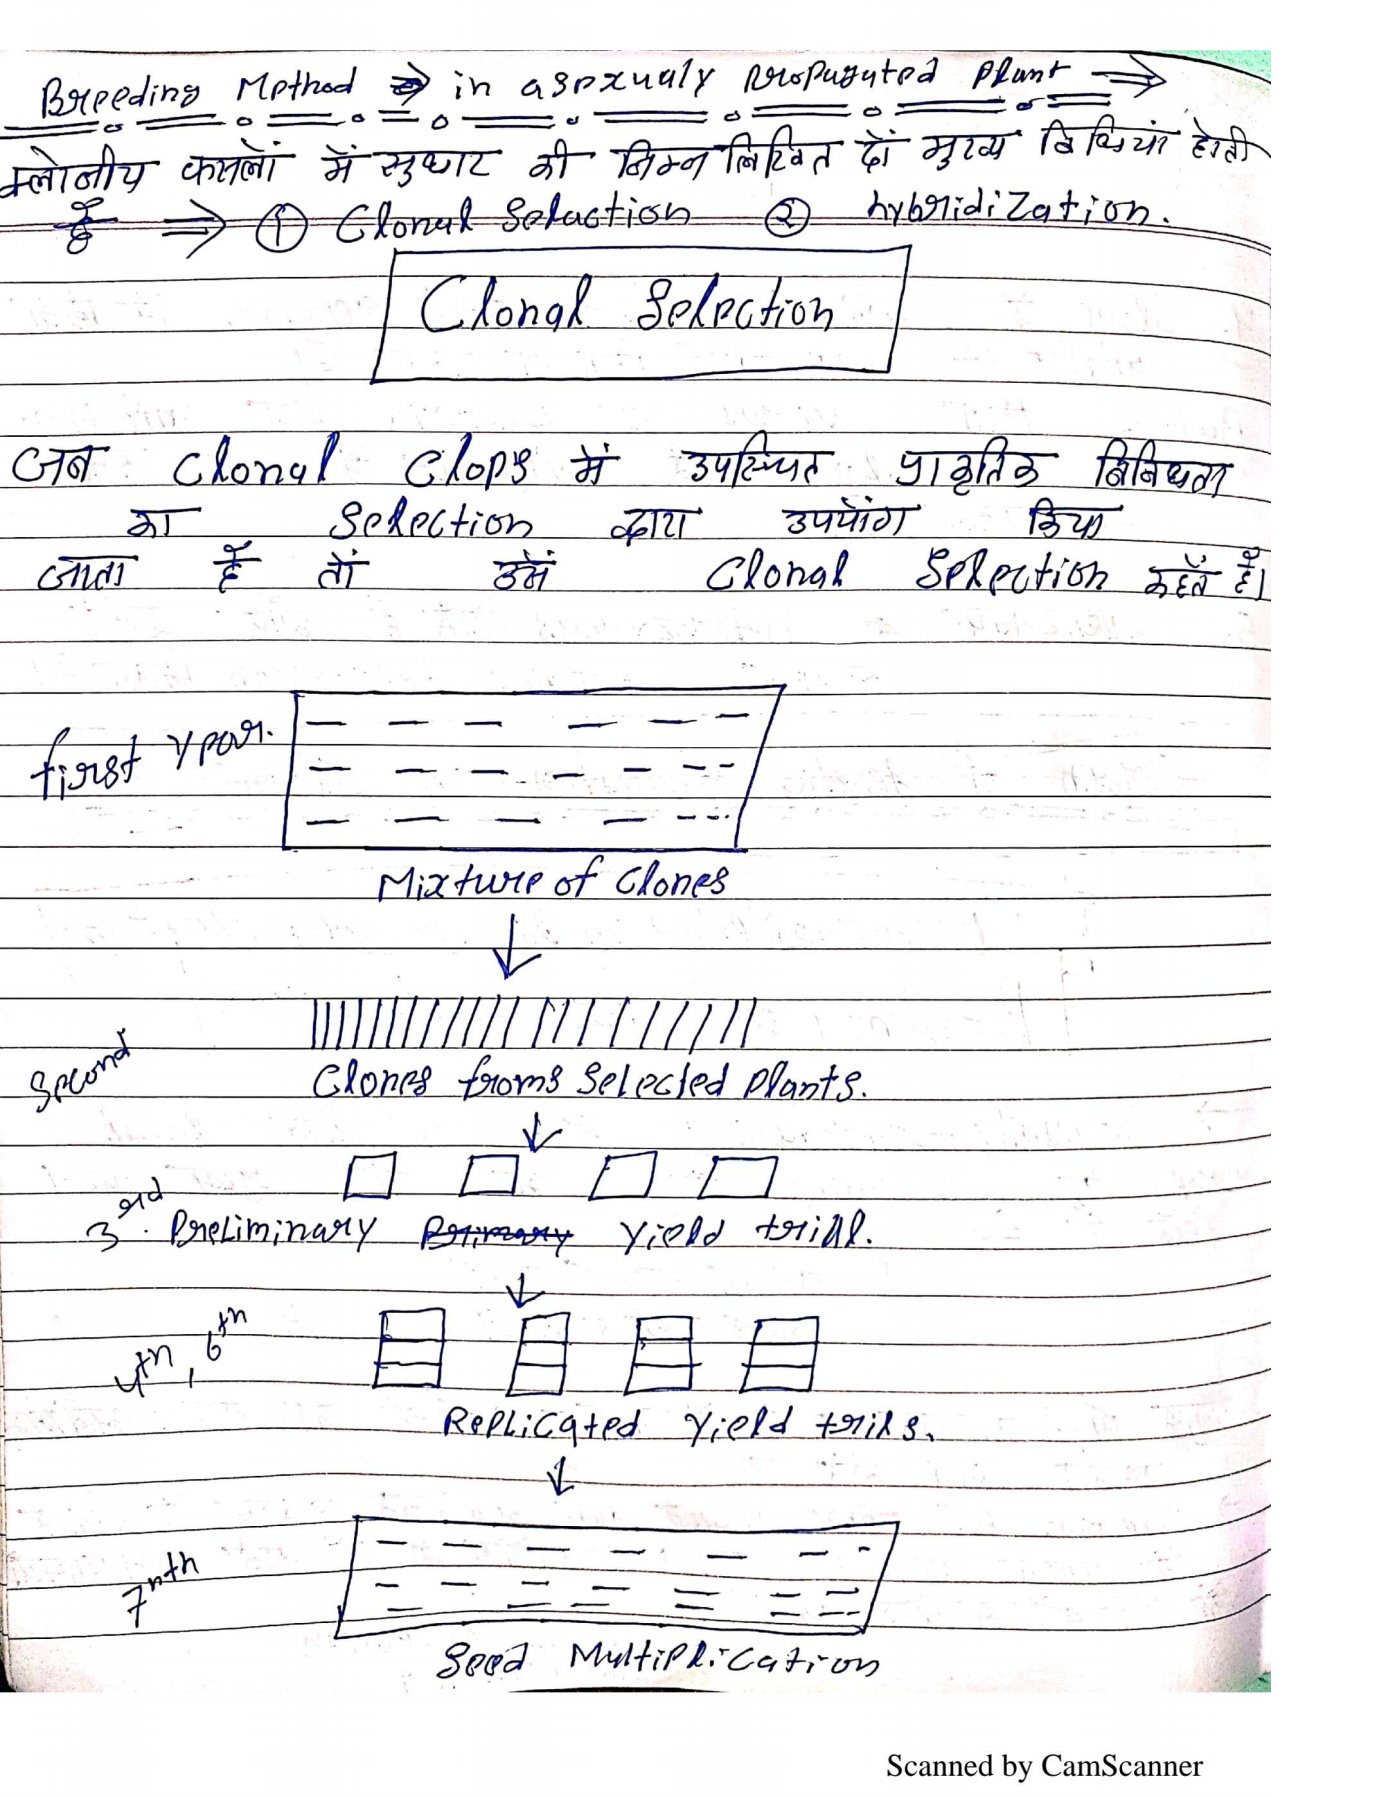 Breeding Method ⇒ in asexualy propagated plant ⇒
क्लोनीय फसलों में सुधार की निम्न लिखित दों मुख्य विधियां होती
हैं ⇒ ① Clonal Seluction ② hybridization.
Clonal Selection
जब Clonal Clops में उपस्थित प्राकृतिक बिबिधता
का Selection द्वारा उपयोंग किया
जाता हैं तों उसें Clonal Selection कहतें हैं।
first year.
Mixture of Clones
Second
Clones froms Selected Plants.
3rd. Preliminary Primary Yield triall.
4th, 6th
Replicated Yield trils.
7nth
Seed Multiplication
Scanned by CamScanner